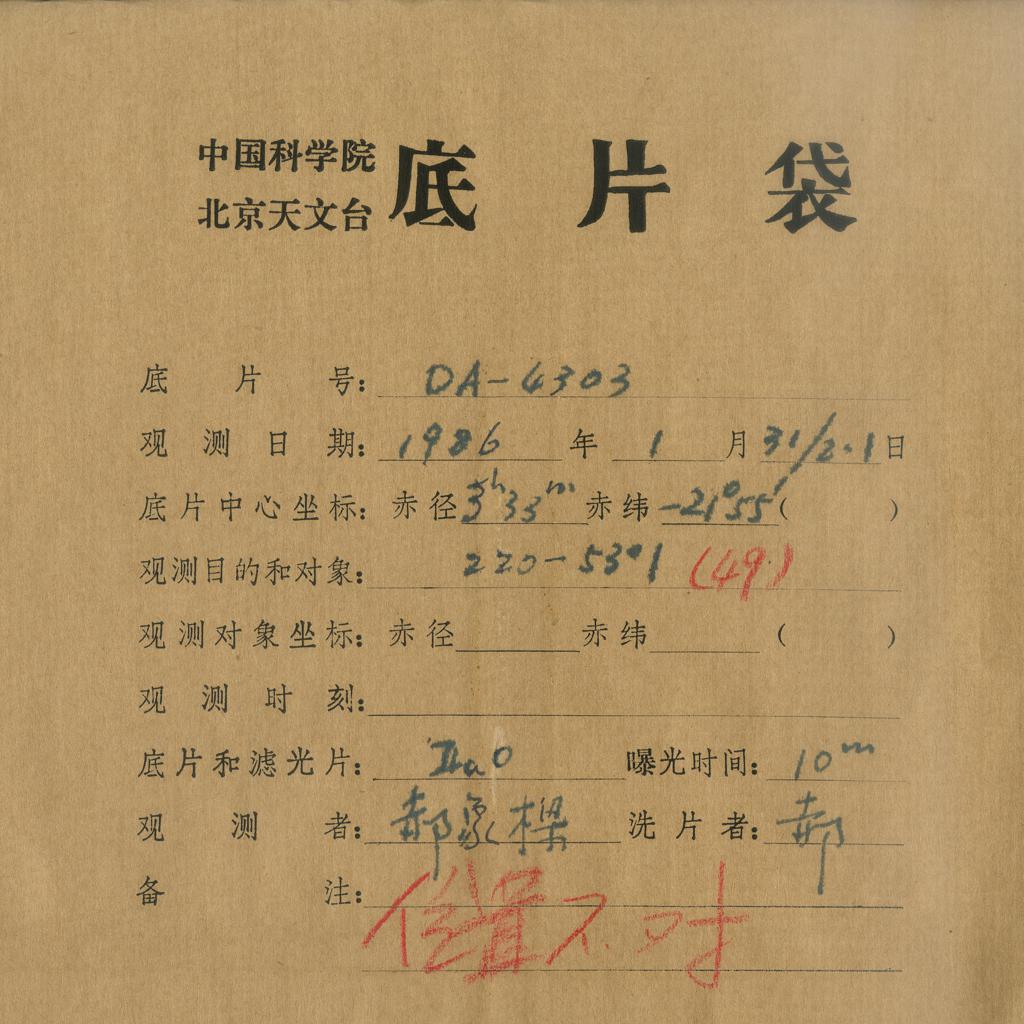 中国科学院
北京天文台
底片袋
底片号: DA-4303
观测日期: 1986年1月31/2.1日
底片中心坐标: 赤径 3ʰ33ᵐ 赤纬 -21°55′ ( )
观测目的和对象: 220-53°1 (49)
观测对象坐标: 赤径 赤纬 ( )
观测时刻:
底片和滤光片: IIaO 曝光时间: 10ᵐ
观测者: 郝象樑 洗片者: 郝
备注:
位置不对